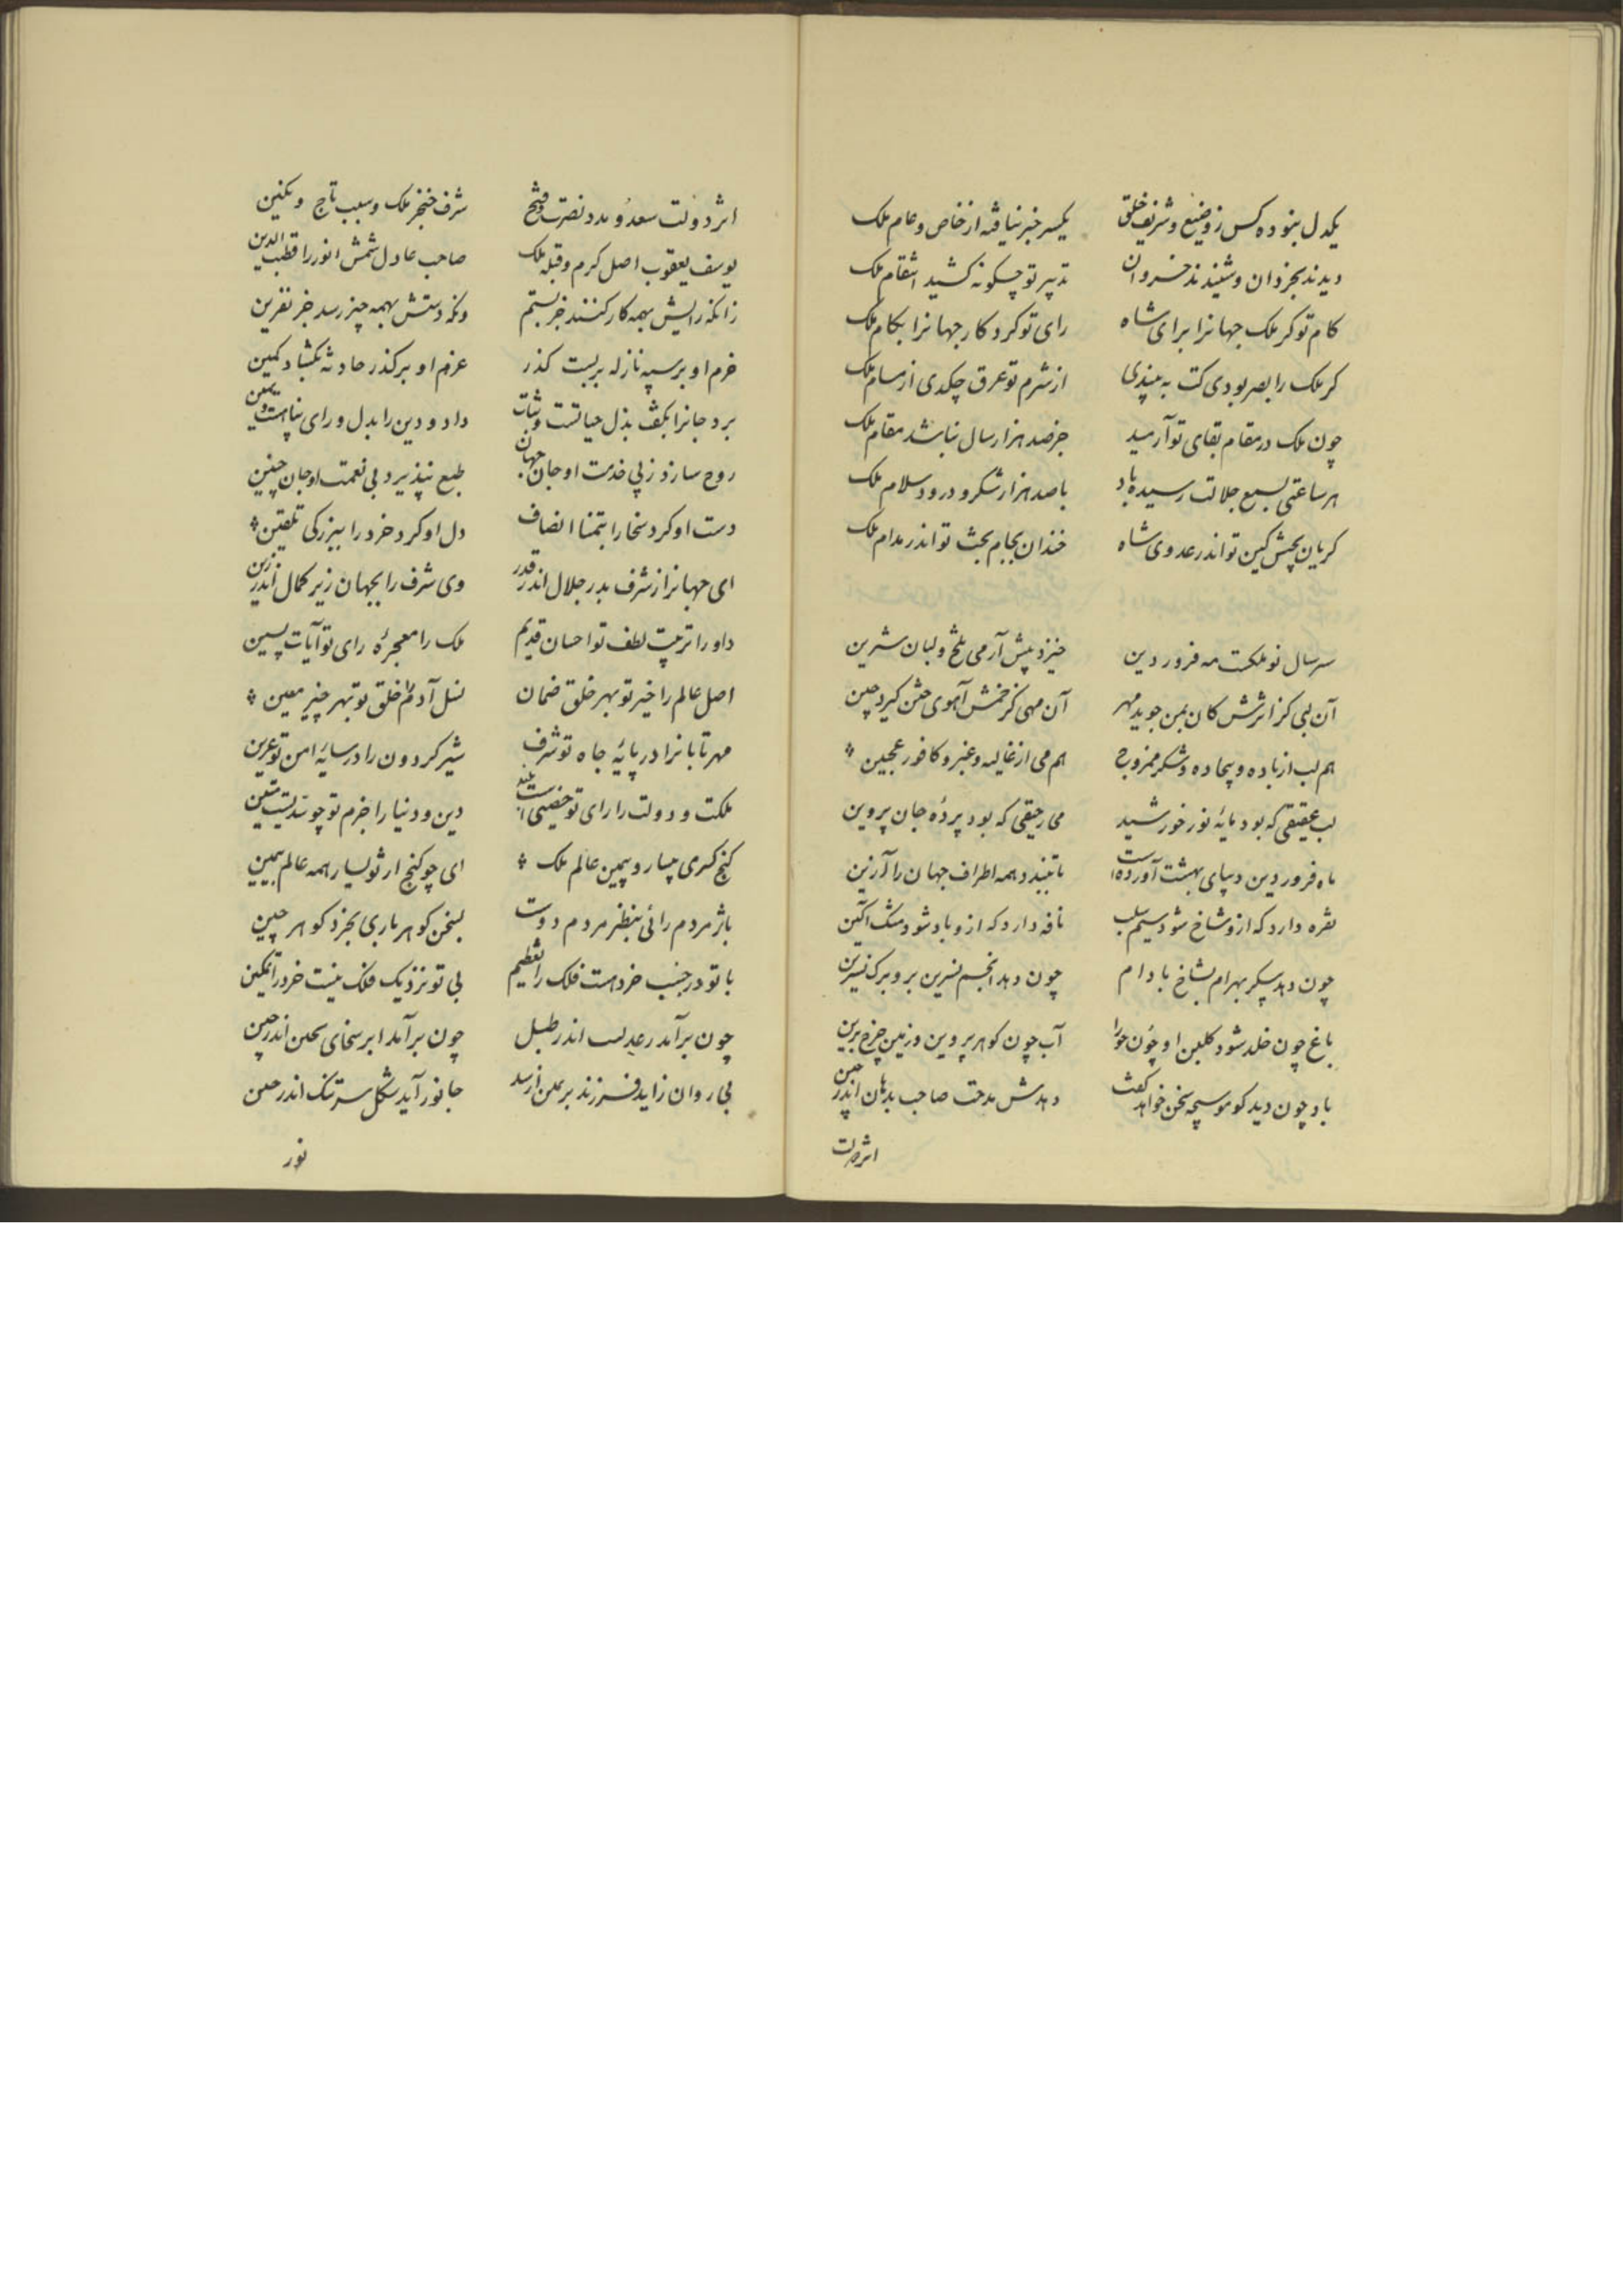 یکدل بنوده کس ز وضیع و شریف خلق یکسر خبر نیافته از خاص و عام ملک
دیدند بخردان و شنیدند خسروان تدبیر تو چگونه کشید انتقام ملک
کام تو کر ملک جهانرا برای شاه رای تو کرد کار جهانرا بکام ملک
کر ملک را بصر بودی کت به بیندی از شرم تو عرق چکدی از مسام ملک
چون ملک در مقام بقای تو آرمید جز صد هزار سال نباشد مقام ملک
هر ساعتی بسمع جلالت رسیده باد با صد هزار شکر و درود و سلام ملک
کریان بچشم کین تو اندر عدوی شاه خندان بجام بخت تو اندر مدام ملک
سر سال نو ملکت مه فرور دین خیز و پیش آر می تلخ و لبان شیرین
آن لبی کز اثرش کان یمن جوید مهر آن مهی کز خمش آهوی ختن کیرد چین
هم لب از باده و بیجاده و شکر ممزوج هم می از غالیه و عنبر و کافور عجین
لب عقیقی که بود مایهٔ نور خورشید می رحیقی که بود پردهٔ جان پروین
ماه فروردین دیبای بهشت آورده است تا ببندد همه اطراف جهان را آذین
نقره دارد که ازو شاخ شود سیم سلب نافه دارد که ازو باد شود مشک آکین
چون دهد پیکر بهرام بشاخ بادام چون دهد انجم نسرین بر و برک نسرین
باغ چون خلد شود کلبن او چون حورا آب چون کوهر پروین و زمین چرخ برین
باد چون دید کو موسیچه سخن خواهد کفت دهدش مدحت صاحب بدهان اندر حین
اثر دولت
اثر دولت سعد و مدد نصرت و فتح شرف خنجر ملک و سبب تاج و نکین
یوسف یعقوب اصل کرم و قبله ملک صاحب عادل شمش انور را قطب الدین
زانکه رایش بهمه کار کنند جز بستم ونکه دستش بهمه چیز رسد جز نفرین
حزم او بر سپه نازله بر بست کذر عزم او بر کذر حادثه بکشاد کمین
برد جانرا بکف بذل حیاتست و ثبات داد و دین را بدل و رای پناهست و معین
روح سازد ز پی خدمت او جان جهان طبع نپذیرد بی نعمت او جان جنین
دست او کرد سخا را بتمنا انصاف دل او کرد خرد را ببزرکی تلقین
ای جهانرا ز شرف بدر جلال اندر قدر وی شرف را بجهان زیر کمال اندر زین
داور را تربیت لطف تو احسان قدیم ملک را معجزهٔ رای تو آیات پسین
اصل عالم را خیر تو بهر خلق ضمان نسل آدم را خلق تو بهر چیز معین
مهر تابانرا در پایهٔ جاه تو شرف شیر کردون را در سایهٔ امن تو عرین
ملکت و دولت را رای تو حصنی است بلند دین و دنیا را حزم تو چو سدیست متین
کنج کسری بیسار و بیمین عالم ملک ای چو کنج از تو یسار همه عالم بیمین
باز مردم را نی بنظر مردم دوست بسخن کوهر باری بخرد کوهر چین
با تو در جنب خردست فلک را تعظیم بی تو نزدیک فلک نیست خرد را تمکین
چون برآمد رعد لست اندر طبل چون برآمد ابر سخای اندر چین
بی روان زاید فرزند جانور آید بشکل سر اندر
نور